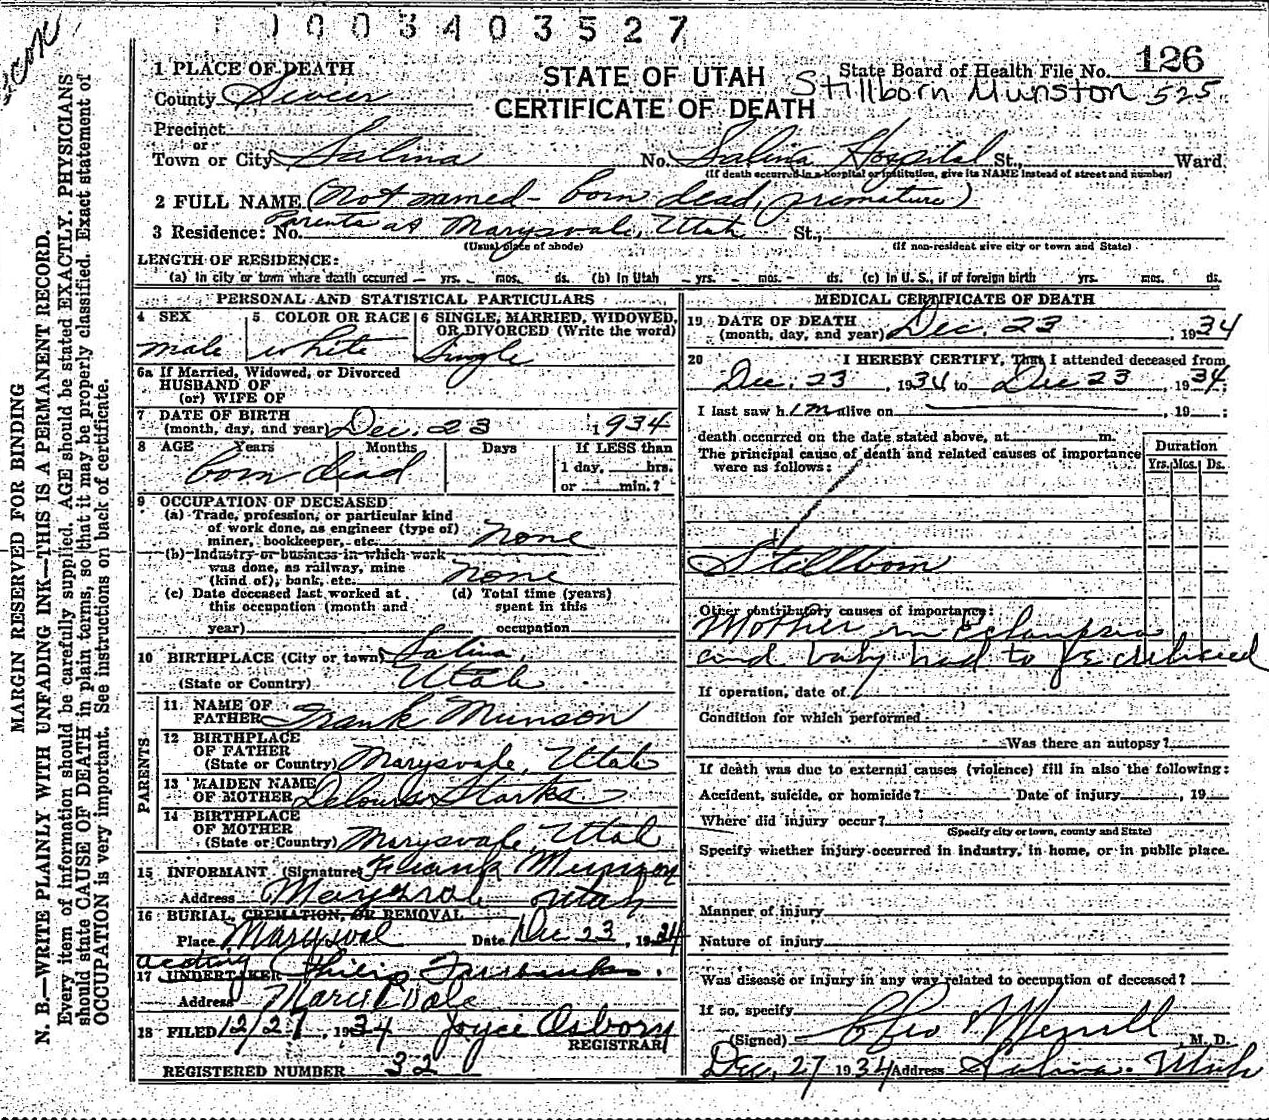 1003403527
126
1 PLACE OF DEATH
STATE OF UTAH
State Board of Health File No.
County Sevier
CERTIFICATE OF DEATH
Stillborn Munston 525
Precinct
or
Town or City Salina No. Salina Hospital St., Ward.
(If death occurred in a hospital or institution, give its NAME instead of street and number)
2 FULL NAME (Not named - born dead, premature)
3 Residence: No. Parents at Marysvale, Utah St.,
(Usual place of abode) (If non-resident give city or town and State)
LENGTH OF RESIDENCE:
(a) In city or town where death occurred yrs. mos. ds. (b) In Utah yrs. mos. ds. (c) In U. S., if of foreign birth yrs. mos. ds.
PERSONAL AND STATISTICAL PARTICULARS
4 SEX 5 COLOR OR RACE 6 SINGLE, MARRIED, WIDOWED, OR DIVORCED (Write the word)
male white Single
6a If Married, Widowed, or Divorced
HUSBAND OF
(or) WIFE OF
7 DATE OF BIRTH
(month, day, and year) Dec. 23 1934
8 AGE Years Months Days If LESS than
born dead 1 day, hrs.
or min.?
9 OCCUPATION OF DECEASED:
(a) Trade, profession, or particular kind
of work done, as engineer (type of)
miner, bookkeeper, etc. none
(b) Industry or business in which work
was done, as railway, mine
(kind of), bank, etc. none
(c) Date deceased last worked at (d) Total time (years)
this occupation (month and spent in this
year) occupation
10 BIRTHPLACE (City or town) Salina,
(State or Country) Utah
PARENTS
11 NAME OF
FATHER Frank Munson
12 BIRTHPLACE
OF FATHER
(State or Country) Marysvale, Utah
13 MAIDEN NAME
OF MOTHER Starks
14 BIRTHPLACE
OF MOTHER
(State or Country) Marysvale, Utah
15 INFORMANT (Signature) Frank Munson
Address Marysvale Utah
16 BURIAL, CREMATION, OR REMOVAL
Place Marysval Date Dec 23, 1934
acting
17 UNDERTAKER Philip Fairbanks.
Address Marysvale
18 FILED 12/27, 1934 Joyce Osborn
REGISTRAR
REGISTERED NUMBER 32
MEDICAL CERTIFICATE OF DEATH
19 DATE OF DEATH
(month, day, and year) Dec. 23, 1934
20 I HEREBY CERTIFY, That I attended deceased from
Dec. 23, 1934 to Dec 23, 1934;
I last saw him alive on , 19 ;
death occurred on the date stated above, at m.
The principal cause of death and related causes of importance
were as follows:
Duration
Yrs. Mos. Ds.
Stillborn
Other contributory causes of importance:
Mother in Eclampsia
and baby had to be delivered
If operation, date of
Condition for which performed
Was there an autopsy?
If death was due to external causes (violence) fill in also the following:
Accident, suicide, or homicide? Date of injury , 19
Where did injury occur?
(Specify city or town, county and State)
Specify whether injury occurred in industry, in home, or in public place.
Manner of injury
Nature of injury
Was disease or injury in any way related to occupation of deceased?
If so, specify
(Signed) Merrill M. D.
Dec. 27 1934 Address Salina - Utah
MARGIN RESERVED FOR BINDING
N. B.—WRITE PLAINLY WITH UNFADING INK—THIS IS A PERMANENT RECORD.
Every item of information should be carefully supplied. AGE should be stated EXACTLY. PHYSICIANS
should state CAUSE OF DEATH in plain terms, so that it may be properly classified. Exact statement of
OCCUPATION is very important. See instructions on back of certificate.